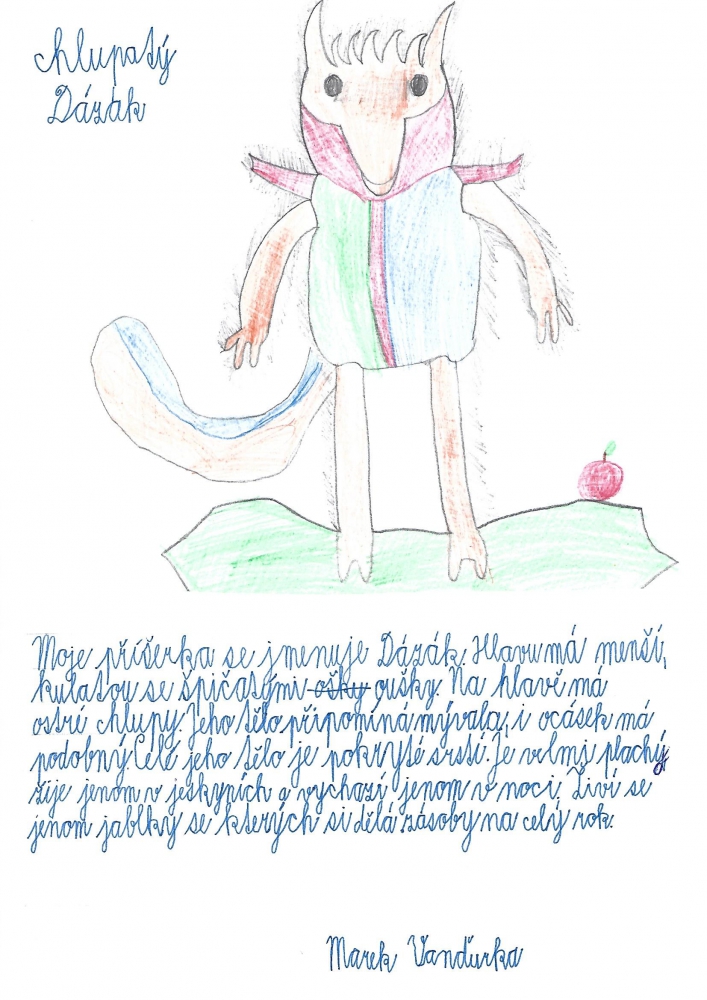 chlupatý
Dázák
Moje příšerka se jmenuje Dázák. Hlavu má menší,
kulatou se špičatými ošky oušky. Na hlavě má
ostré chlupy. Jeho tělo připomíná mývala, i ocásek má
podobný. Celé jeho tělo je pokryté srstí. Je velmi plachý,
žije jenom v jeskyních a vychází jenom v noci. Živí se
jenom jablky se kterých si dělá zásoby na celý rok.
Marek Vanďurka